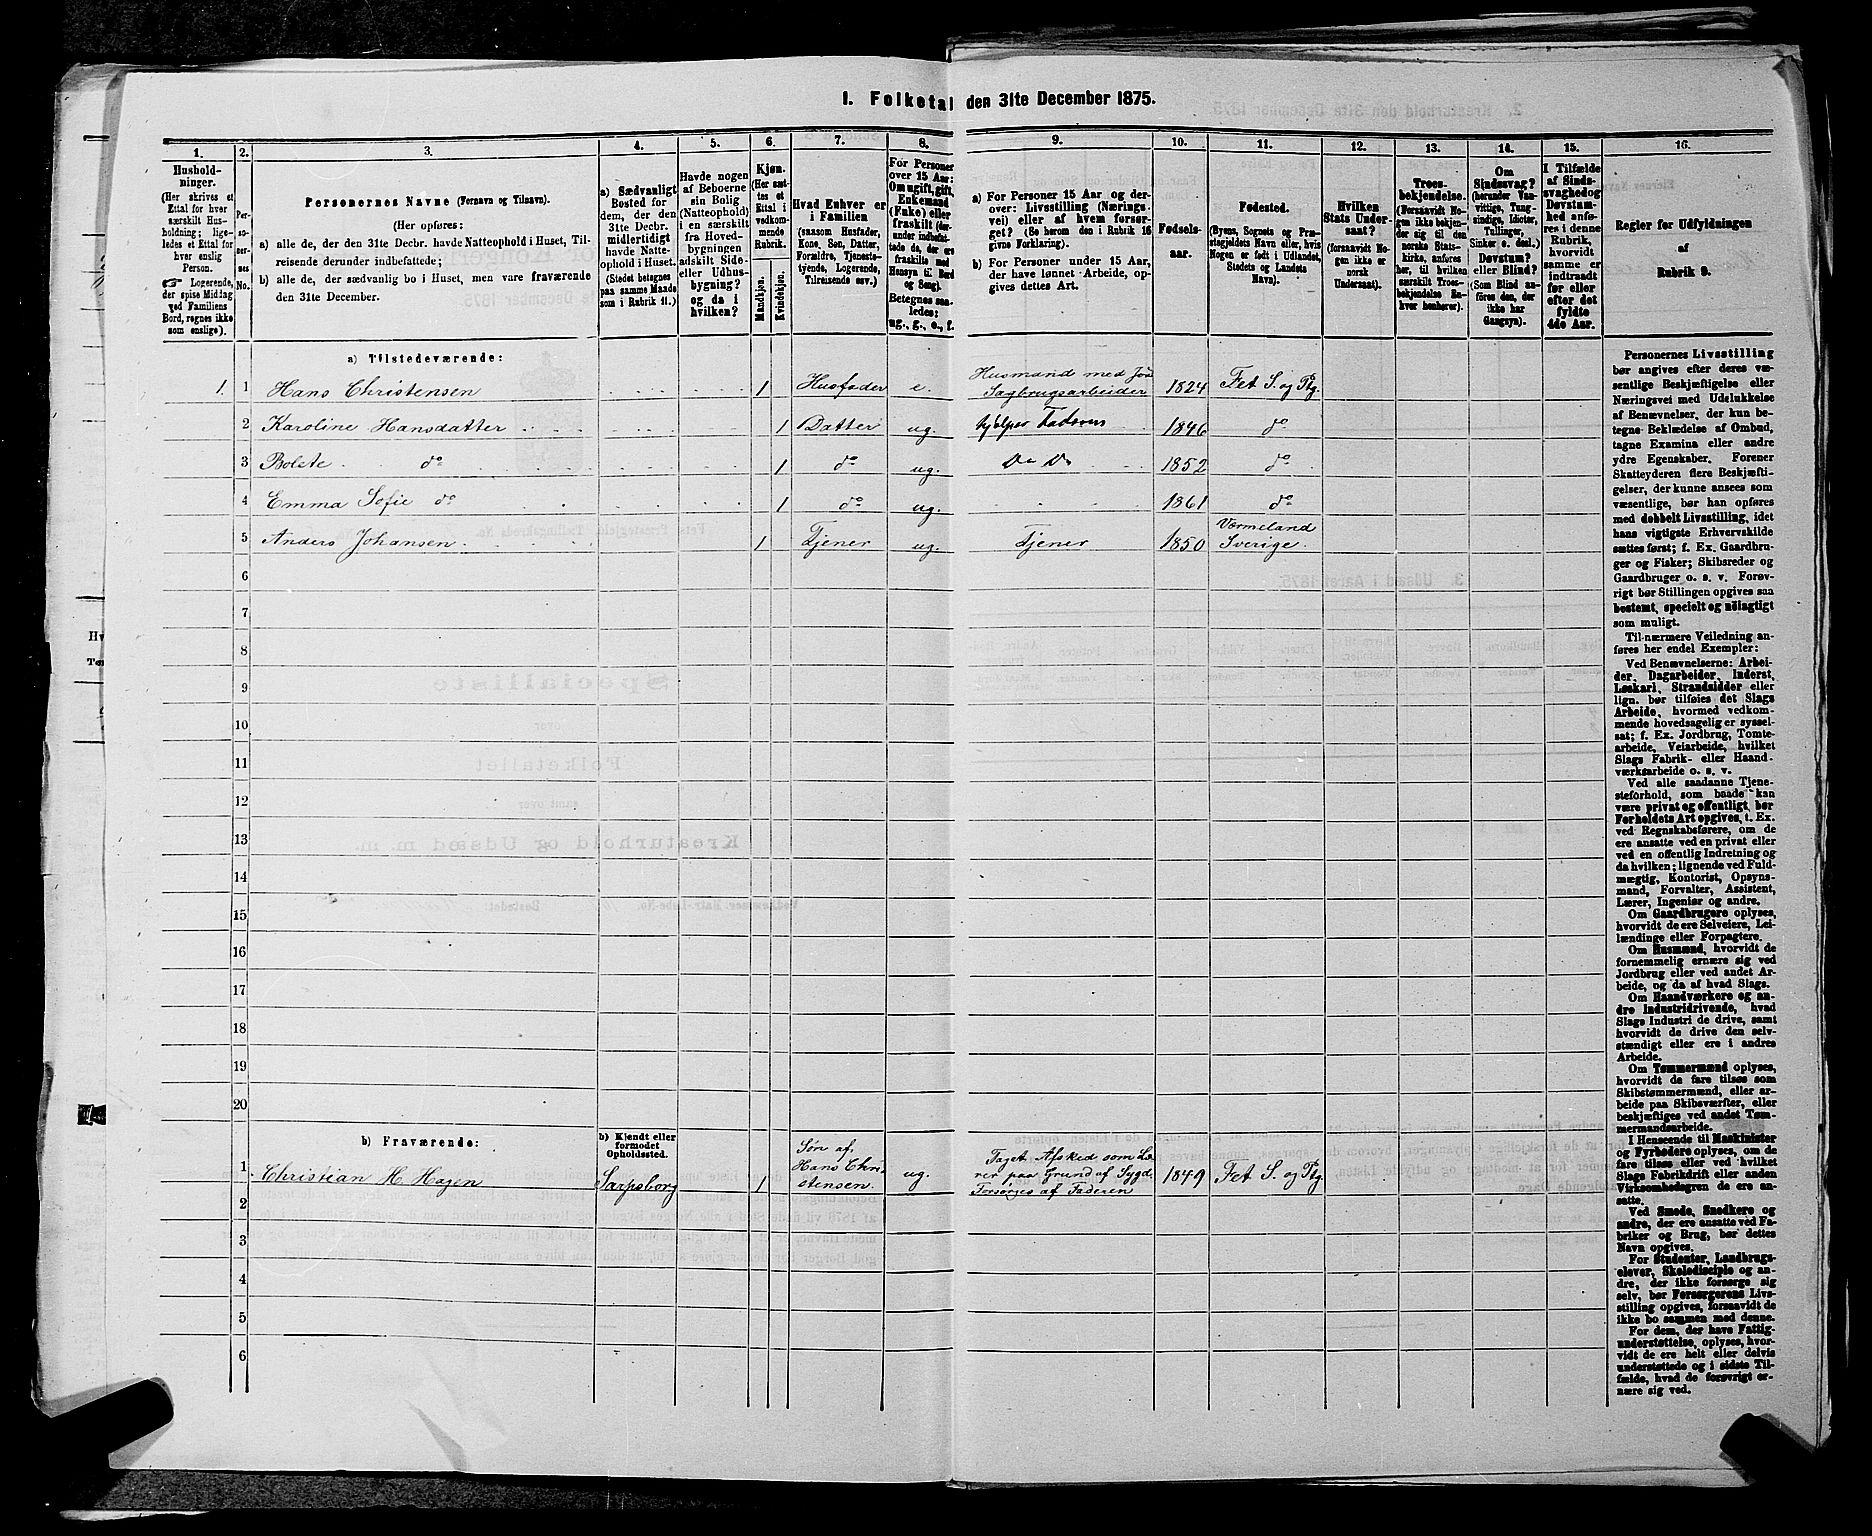 I. Folketal den 31te December 1875.
1.
2.
3.
4.
5.
6.
7.
8.
9.
10.
11.
12.
13.
14.
15.
16.
Hushold-
ninger.
(Her skrives et
Ettal for hver
særskilt Hus-
holdning; lige-
ledes et Ettal for
hver enslig
Person.
☞ Logerende,
der spise Middag
ved Familiens
Bord, regnes ikke
som enslige).
Per-
so-
ner-
nes
No.
Personernes Navne (Fornavn og Tilnavn).
(Her opføres:
a) alle de, der den 31te Decbr. havde Natteophold i Huset, Til-
reisende derunder indbefattede;
b) alle de, der sædvanlig bo i Huset, men vare fraværende
den 31te December.
a) Sædvanligt
Bosted for
dem, der den
31te Decbr.
midlertidigt
havde Natte-
ophold i Huset.
(Stedet betegnes
paa samme Maade
som i Rubrik 11.)
Havde nogen
af Beboerne
sin Bolig
(Natteophold)
i en særskilt
fra Hoved-
bygningen
adskilt Side-
eller Udhus-
bygning?
og da i
hvilken?
Kjøn.
(Her sæt-
tes et
Ettal i
vedkom-
mende
Rubrik.
Mandkjøn.
Kvindekjøn.
Hvad Enhver er
i Familien
(saasom Husfader,
Kone, Søn, Datter,
Forældre, Tjeneste-
tjende, Logerende,
Tilreisende osv.)
For Personer
over 15 Aar:
Om ugift, gift,
Enkemand
(Enke) eller
fraskilt (der-
under indbefat-
tede de, der ere
fraskilte med
Hensyn til Bord
og Seng).
Betegnes saa-
ledes:
ug., g., e., f.
a) For Personer 15 Aar og der-
over: Livsstilling (Nærings-
vei) eller af hvem forsør-
get? (Se herom den i Rubrik 16
givne Forklaring).
b) For Personer under 15 Aar,
der have lønnet Arbeide, op-
gives dettes Art.
Fødsels-
aar.
Fødested.
(Byens, Sognets og Præ-
stegjeldets Navn eller, hvis
Nogen er født i Udlandet,
Stedets og Landets
Navn).
Hvilken
Stats Under-
saat?
(forsaavidt No-
gen ikke er
norsk
Undersaat).
Troes-
bekjendelse.
(Forsaavidt No-
gen ikke bekjen-
der sig til den
norske Stats-
kirke, anføres
her, til hvilken
særskilt Troes-
bekjendelse En-
hver henhører).
Om
Sindssvag?
(herunder Van-
vittige, Tung-
sindige, Idioter,
Tullinger,
Sinker o. desl.).
Døvstum?
eller Blind?
(Som Blind an-
føres den, der
ikke har
Gangsyn).
I Tilfælde
af Sinds-
svaghed og
Døvstum-
hed anfø-
res i denne
Rubrik,
hvorvidt
samme er
indtraadt
før eller
efter det
fyldte
4de Aar.
Regler for Udfyldningen
af
Rubrik 9.
a) Tilstedeværende:
1. 1 Hans Christensen 1 Husfader e. Husmand med Jord Sagbrugsarbeider 1824 Fet S. og Ptg.
2 Karoline Hansdatter 1 Datter ug. hjelper Faderen 1846 do
3 Bolete do 1 do ug. Do Do 1852 do
4 Emma Sofie do 1 do ug. 1861 do
5 Anders Johansen 1 Tjener ug. Tjener 1850 Værmeland Sverige.
6
7
8
9
10
11
12
13
14
15
16
17
18
19
20
b) Fraværende:
b) Kjendt eller
formodet
Opholdssted.
1 Christian H. Hagen Sarpsborg 1 Søn af Hans Christensen ug. Taget Afsked som Lærer paa Grund af Sygd. Forsørges af Faderen 1849 Fet S. og Ptg.
2
3
4
5
6
Personernes Livsstilling
bør angives efter deres væ-
sentlige Beskjæftigelse eller
Næringsvei med Udelukkelse
af Benævnelser, der kun be-
tegne Beklædelse af Ombud,
tagne Examina eller andre
ydre Egenskaber. Forener
Skatteyderen flere Beskjæfti-
gelser, der kunne ansees som
væsentlige, bør han opføres
med dobbelt Livsstilling, idet
hans vigtigste Erhvervskilde
sættes først; f. Ex. Gaardbru-
ger og Fisker; Skibsreder og
Gaardbruger o. s. v. Forøv-
rigt bør Stillingen opgives saa
bestemt, specielt og nøiagtigt
som muligt.
Til nærmere Veiledning an-
føres her endel Exempler:
Ved Benævnelserne: Arbei-
der, Dagarbeider, Inderst,
Løskarl, Strandsidder eller
lign. bør tilføies det Slags
Arbeide, hvormed vedkom-
mende hovedsagelig er syssel-
sat; f. Ex. Jordbrug, Tomte-
arbeide, Veiarbeide, hvilket
Slags Fabrik- eller Haand-
værksarbeide o. s. v.
Ved alle saadanne Tjene-
steforhold, som baade kan
være privat og offentligt, bør
Forholdets Art opgives, t. Ex.
ved Regnskabsførere, om de
ere ansatte ved en privat eller
ved en offentlig Indretning og
da hvilken; lignende ved Fuld-
mægtig, Kontorist, Opsyns-
mand, Forvalter, Assistent,
Lærer, Ingeniør og andre.
Om Gaardbrugere oplyses,
hvorvidt de ere Selveiere, Lei-
lændinge eller Forpagtere.
Om Husmænd, hvorvidt de
fornemmelig ernære sig ved
Jordbrug eller ved andet Ar-
beide, og da af hvad Slags.
Om Haandværkere og an-
dre Industridrivende, hvad
Slags Industri de drive, samt
hvorvidt de drive den selv-
stændigt eller ere i andres
Arbeide.
Om Tømmermænd oplyses,
hvorvidt de fare tilsøs som
Skibstømmermænd, eller ar-
beide paa Skibsværfter, eller
beskjæftiges ved andet Tøm-
mermandsarbeide.
I Henseende til Maskinister
og Fyrbødere oplyses, om de
fare tilsøs eller ved hvilket
Slags Fabrikdrift eller anden
Virksomhedsgren de ere an-
satte.
Ved Smede, Snedkere og
andre, der ere ansatte ved Fa-
briker og Brug, bør dettes
Navn opgives.
For Studenter, Landbrugs-
elever, Skoledisciple og an-
dre, der ikke forsørge sig
selv, bør Forsørgerens Livs-
stilling opgives, forsaavidt de
ikke bo sammen med denne.
For dem, der have Fattig-
understøttelse, oplyses, hvor-
vidt de ere helt eller delvis
understøttede og i sidste Til-
fælde, hvad de forøvrigt er-
nære sig ved.